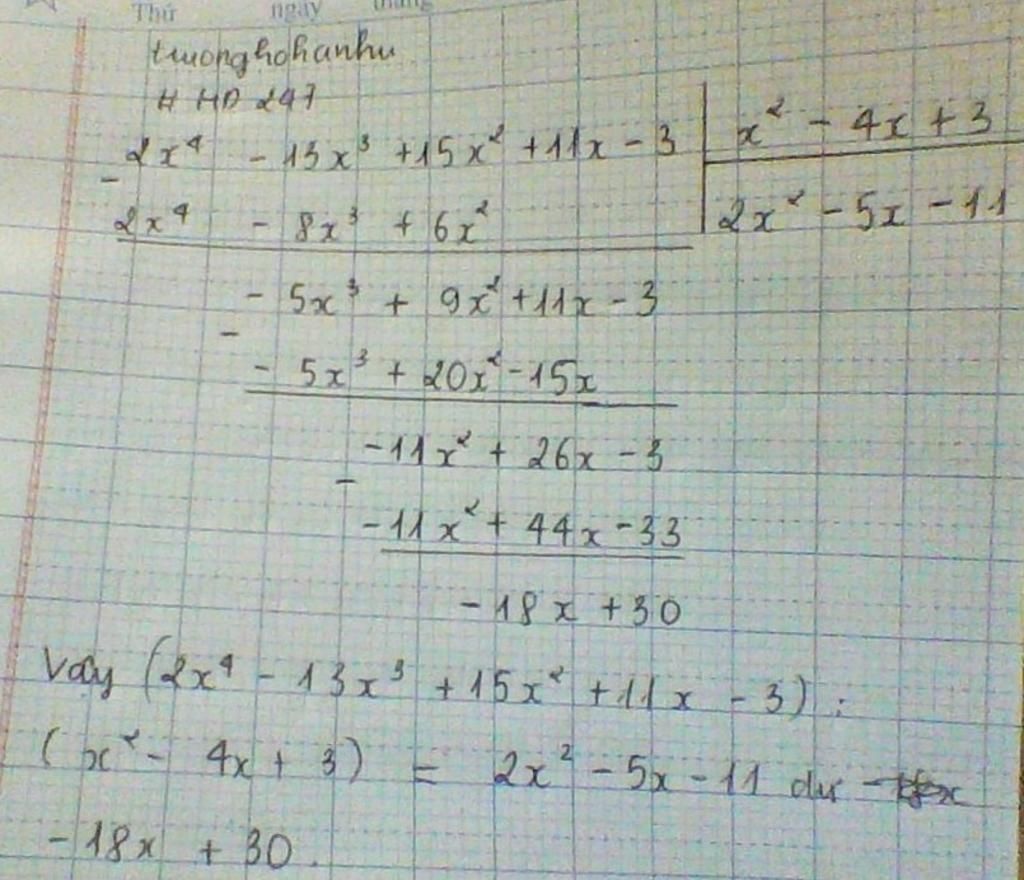 Thứ ngày tháng
truonghohanhu
# HD 247
2x⁴ - 13x³ + 15x² + 11x - 3 | x² - 4x + 3
-
2x⁴ - 8x³ + 6x² | 2x² - 5x - 11
- 5x³ + 9x² + 11x - 3
-
- 5x³ + 20x² - 15x
-11x² + 26x - 3
-
-11x² + 44x - 33
-18x + 30
Vậy (2x⁴ - 13x³ + 15x² + 11x - 3) :
(x² - 4x + 3) = 2x² - 5x - 11 dư
-18x + 30.